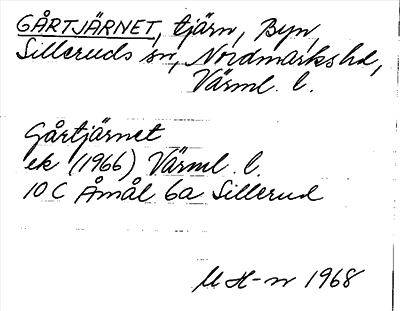 GÅRTJÄRNET, tjärn, Byn,
Silleruds sn, Nordmarks hd,
Värml. l.
Gårtjärnet
ek (1966) Värml. l.
10 C Åmål 6a Sillerud
M H-n 1968